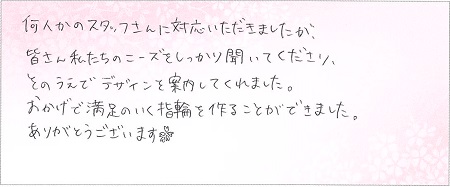 何人かのスタッフさんに対応いただきましたが、
皆さん私たちのニーズをしっかり聞いてくださり、
そのうえでデザインを案内してくれました。
おかげで満足のいく指輪を作ることができました。
ありがとうございます